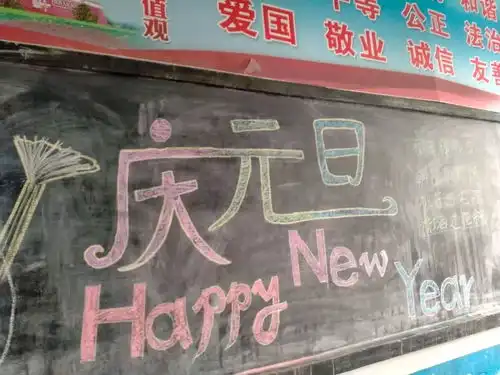 值观
爱国 敬业 诚信 友善
平等 公正 法治
和谐
庆元旦
Happy New Year